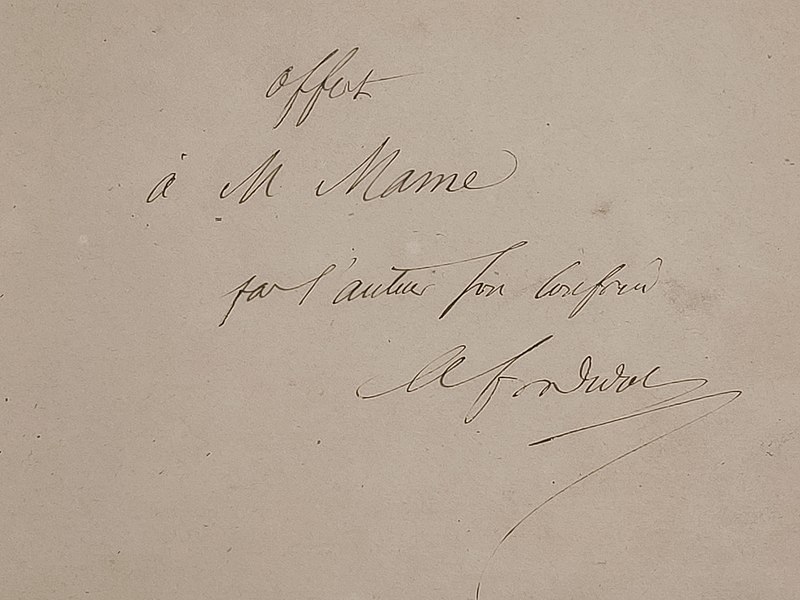 offert
à M Mame
par l'auteur son confrère
A Didot